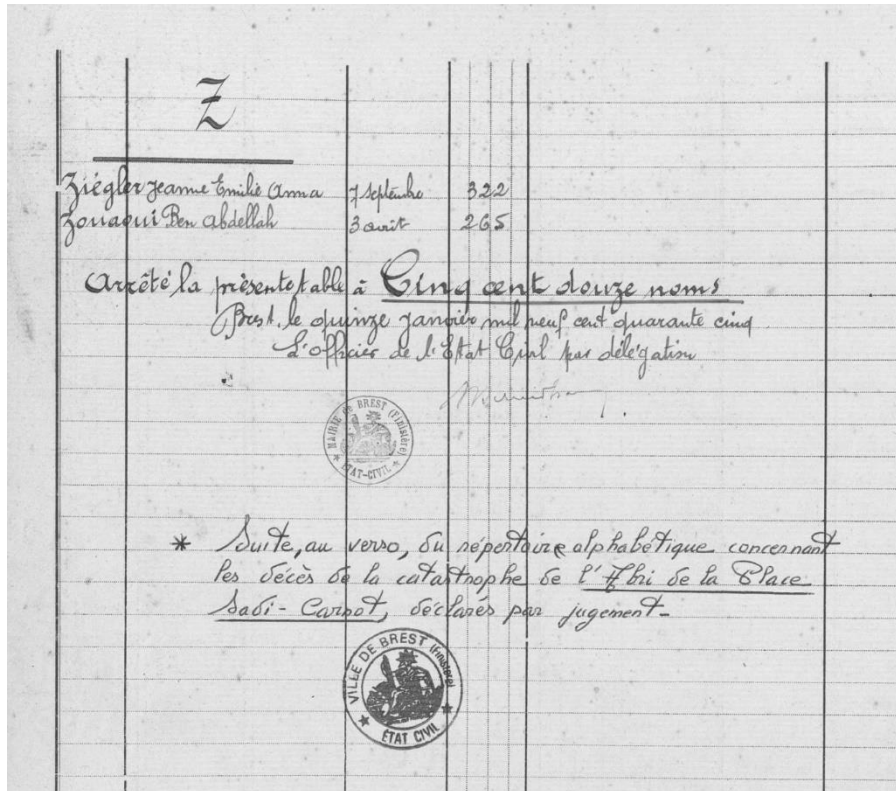 Z
Ziégler Jeanne Emilie Anna 7 septembre 322
Zouaoui Ben Abdellah 3 avril 265
Arrêté la présente table à Cinq cent douze noms
Brest, le quinze janvier mil neuf cent quarante cinq
L'officier de l'Etat Civil par délégation
MAIRIE DE BREST (Finistère)
★ ETAT-CIVIL ★
* Suite, au verso, du répertoire alphabétique concernant
les décès de la catastrophe de l'Abri de la Place
Sadi-Carnot, déclarés par jugement-
VILLE DE BREST (Finistère)
★ ÉTAT CIVIL ★